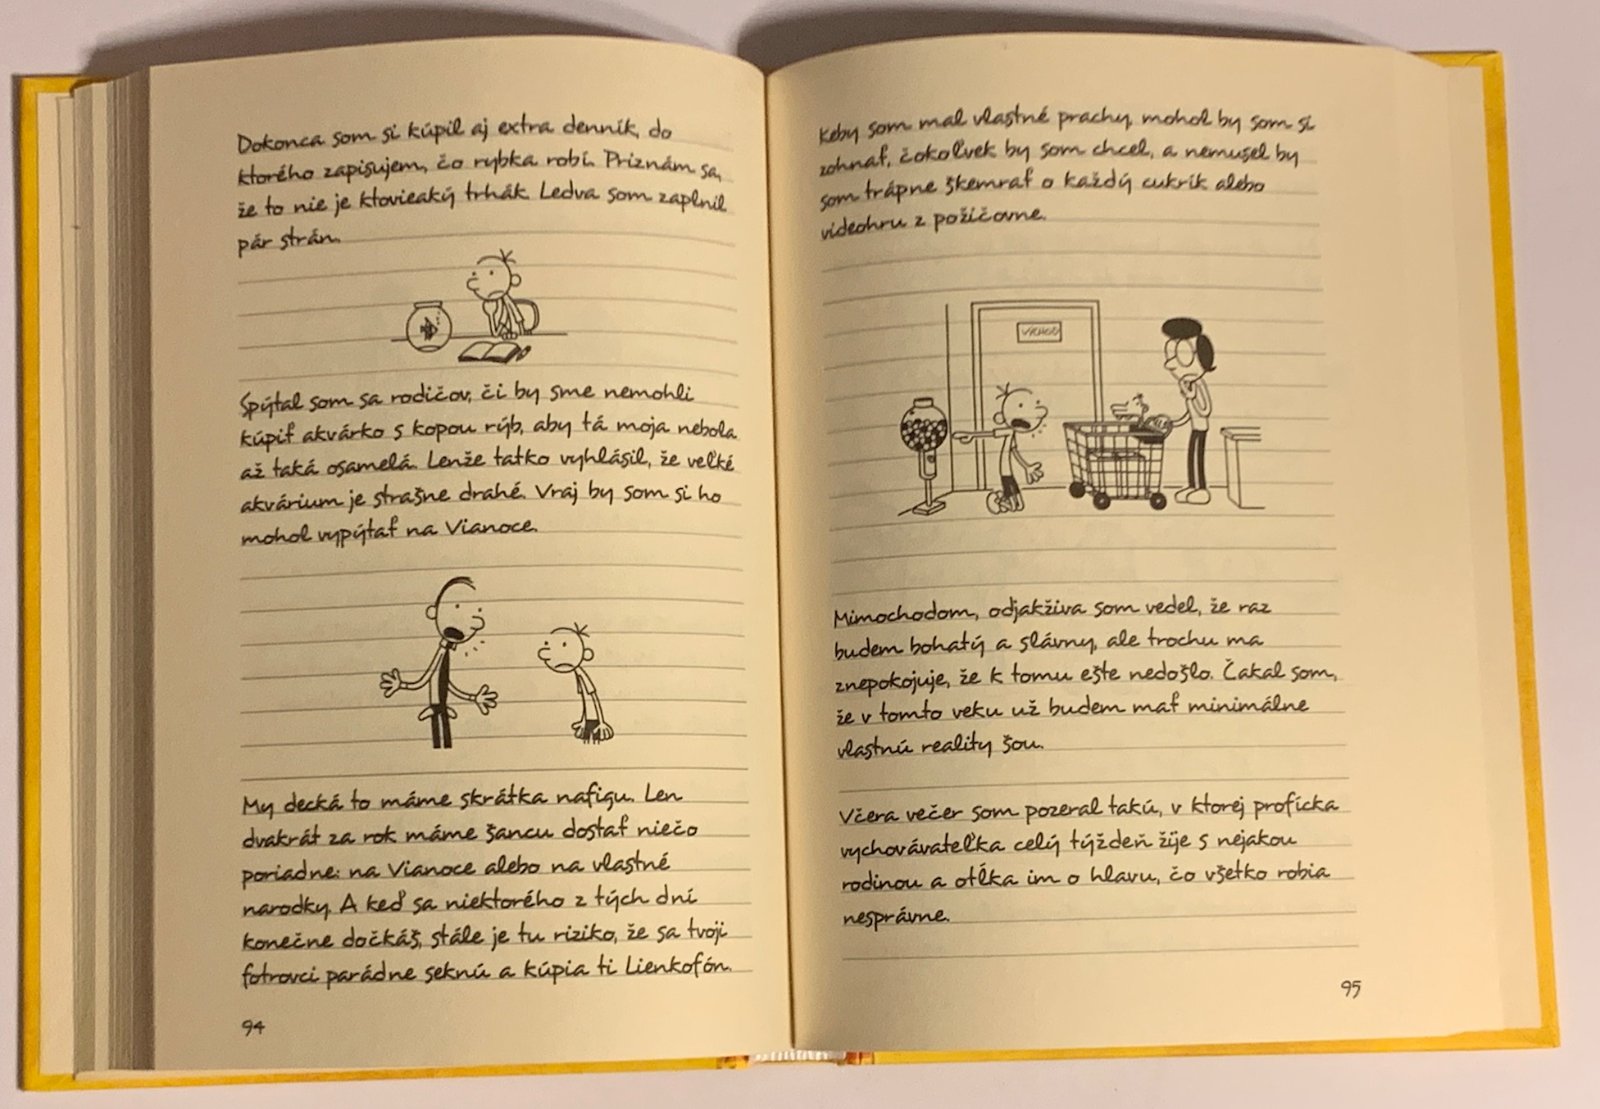 Dokonca som si kúpil aj extra denník, do
ktorého zapisujem, čo rybka robí. Priznám sa,
že to nie je ktovieaký trhák. Ledva som zaplnil
pár strán.
Spýtal som sa rodičov, či by sme nemohli
kúpiť akvárko s kopou rýb, aby tá moja nebola
až taká osamelá. Lenže tatko vyhlásil, že veľké
akvárium je strašne drahé. Vraj by som si ho
mohol vypýtať na Vianoce.
My decká to máme skrátka nafigu. Len
dvakrát za rok máme šancu dostať niečo
poriadne: na Vianoce alebo na vlastné
narodky. A keď sa niektorého z tých dní
konečne dočkáš, stále je tu riziko, že sa tvoji
fotrovci parádne seknú a kúpia ti Lienkofón.
94
Keby som mal vlastné prachy, mohol by som si
zohnať, čokoľvek by som chcel, a nemusel by
som trápne škemrať o každý cukrík alebo
videohru z požičovne.
VÝCHOD
Mimochodom, odjakživa som vedel, že raz
budem bohatý a slávny, ale trochu ma
znepokojuje, že k tomu ešte nedošlo. Čakal som,
že v tomto veku už budem mať minimálne
vlastnú reality šou.
Včera večer som pozeral takú, v ktorej profícka
vychovávateľka celý týždeň žije s nejakou
rodinou a otĺka im o hlavu, čo všetko robia
nesprávne.
95